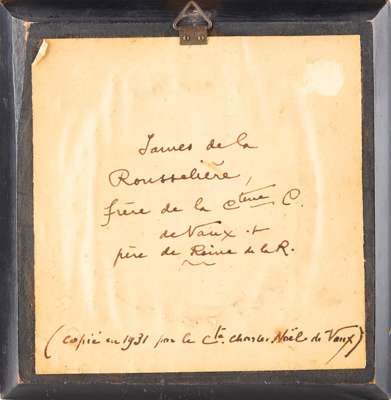 James de la
Rousselière,
frère de la Ctesse C.
de Vaux et
père de Reine de la R.
(copié en 1931 par le Cte Charles Noël de Vaux)